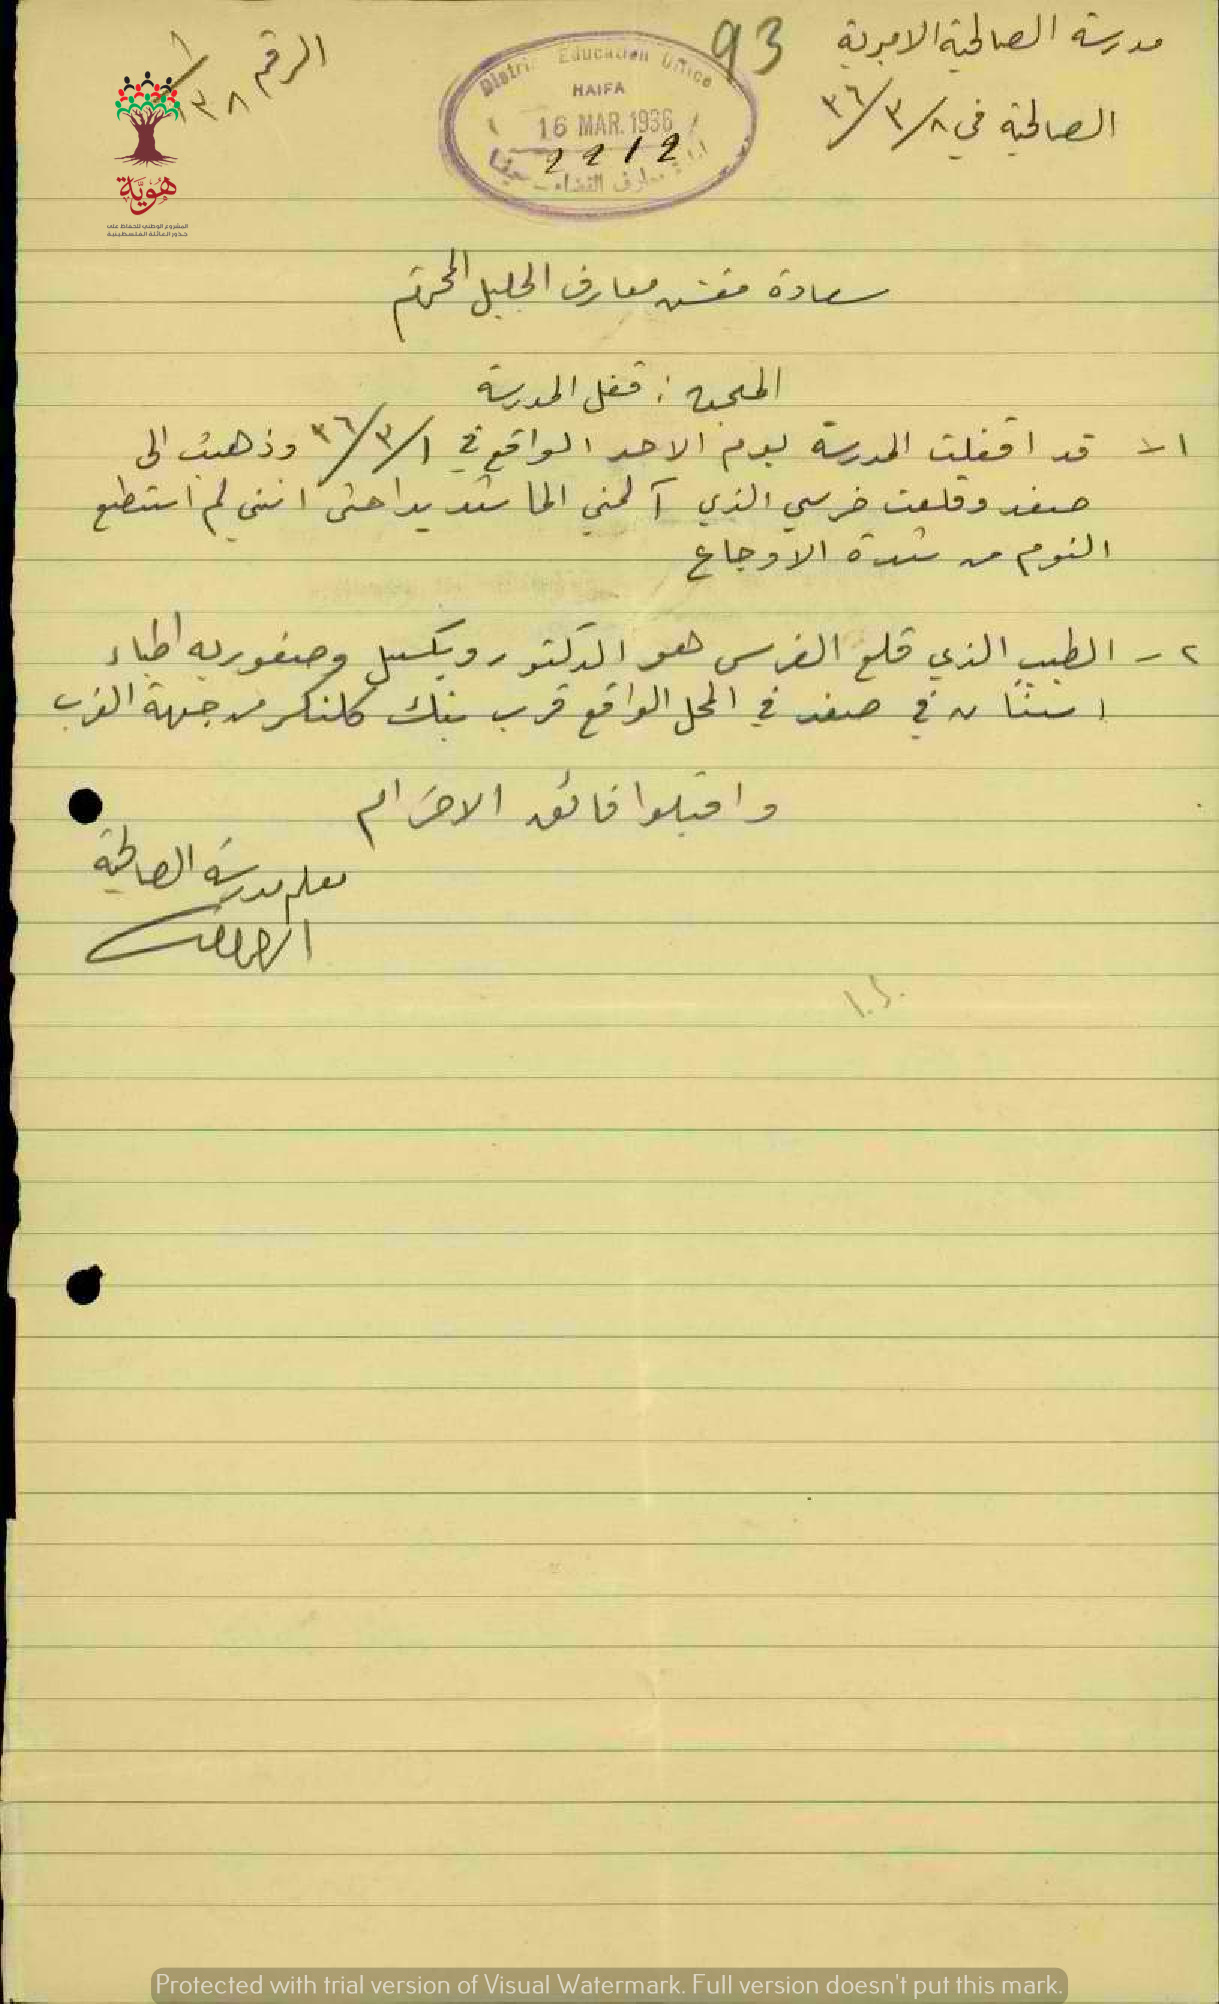 مدرسة الصالحية الاميرية
93
الرقم ١/١٣٨
الصالحية في ٨/٣/٣٦
District Education Office
HAIFA
16 MAR. 1936
2212
معارف القضاء - حيفا
هُوِيَّة
المشروع الوطني للحفاظ على
جذور العائلة الفلسطينية
سعادة مفتش معارف الجليل المحترم
قفل المدرسة
١- قد اقفلت المدرسة يوم الاحد الواقع في ١/٣/٣٦ وذهبت الى
صفد وقلعت ضرسي الذي آلمني الما شديدا حتى انني لم استطع
النوم من شدة الاوجاع
٢- الطبيب الذي قلع الضرس هو الدكتور اطباء
اسنان في صفد في المحل الواقع قرب بنك من جهة الغرب
واقبلوا فائق الاحترام
معلم مدرسة الصالحية
Protected with trial version of Visual Watermark. Full version doesn't put this mark.